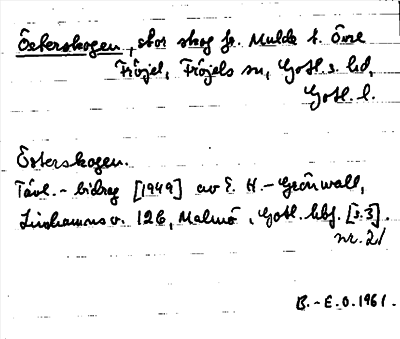 Österskogen, stor skog fr. Mulde t. Övre
Fröjel, Fröjels sn, Gotl. s. hd,
Gotl. l.
Österskogen.
Tävl.-bidrag [1949] av E. H.-Grönwall,
Linhamnsv. 126, Malmö, Gotl. hbf. [s.3].
nr. 21
B.-E.O.1961.